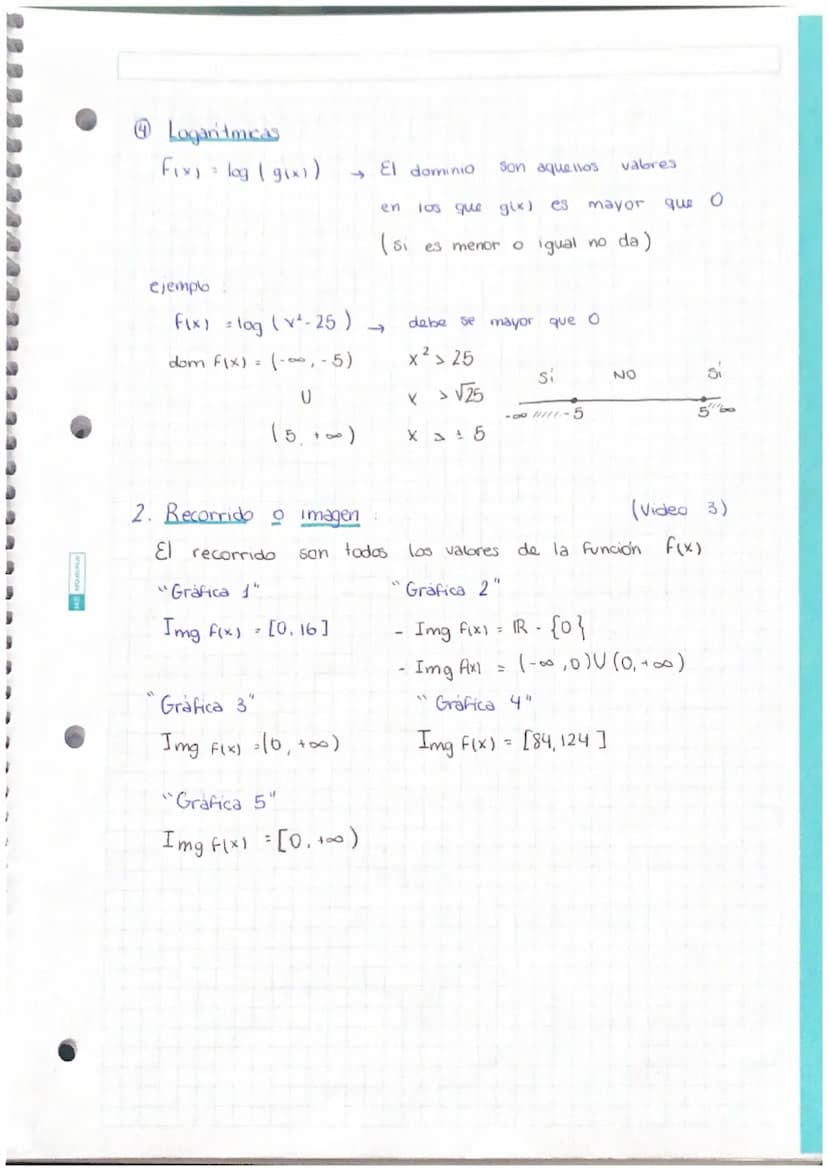 ④ Logarítmicas
F(x) = log (g(x)) → El dominio son aquellos valores
en los que g(x) es mayor que 0
(si es menor o igual no da)
ejemplo :
f(x) = log (x²-25) → debe se mayor que 0
dom f(x) = (-∞, -5) x² > 25
Sí NO Sí
U x > √25
-∞ ///// -5 5 //// ∞
(5, +∞) x > ± 5
2. Recorrido o imagen . (Video 3)
El recorrido son todos los valores de la función f(x)
"Gráfica 1" "Gráfica 2"
Img f(x) = [0, 16] - Img f(x) = ℝ - {0}
- Img f(x) = (-∞, 0) U (0, +∞)
"Gráfica 3" "Gráfica 4"
Img f(x) = (0, +∞) Img f(x) = [84, 124]
"Gráfica 5"
Img f(x) = [0, +∞)